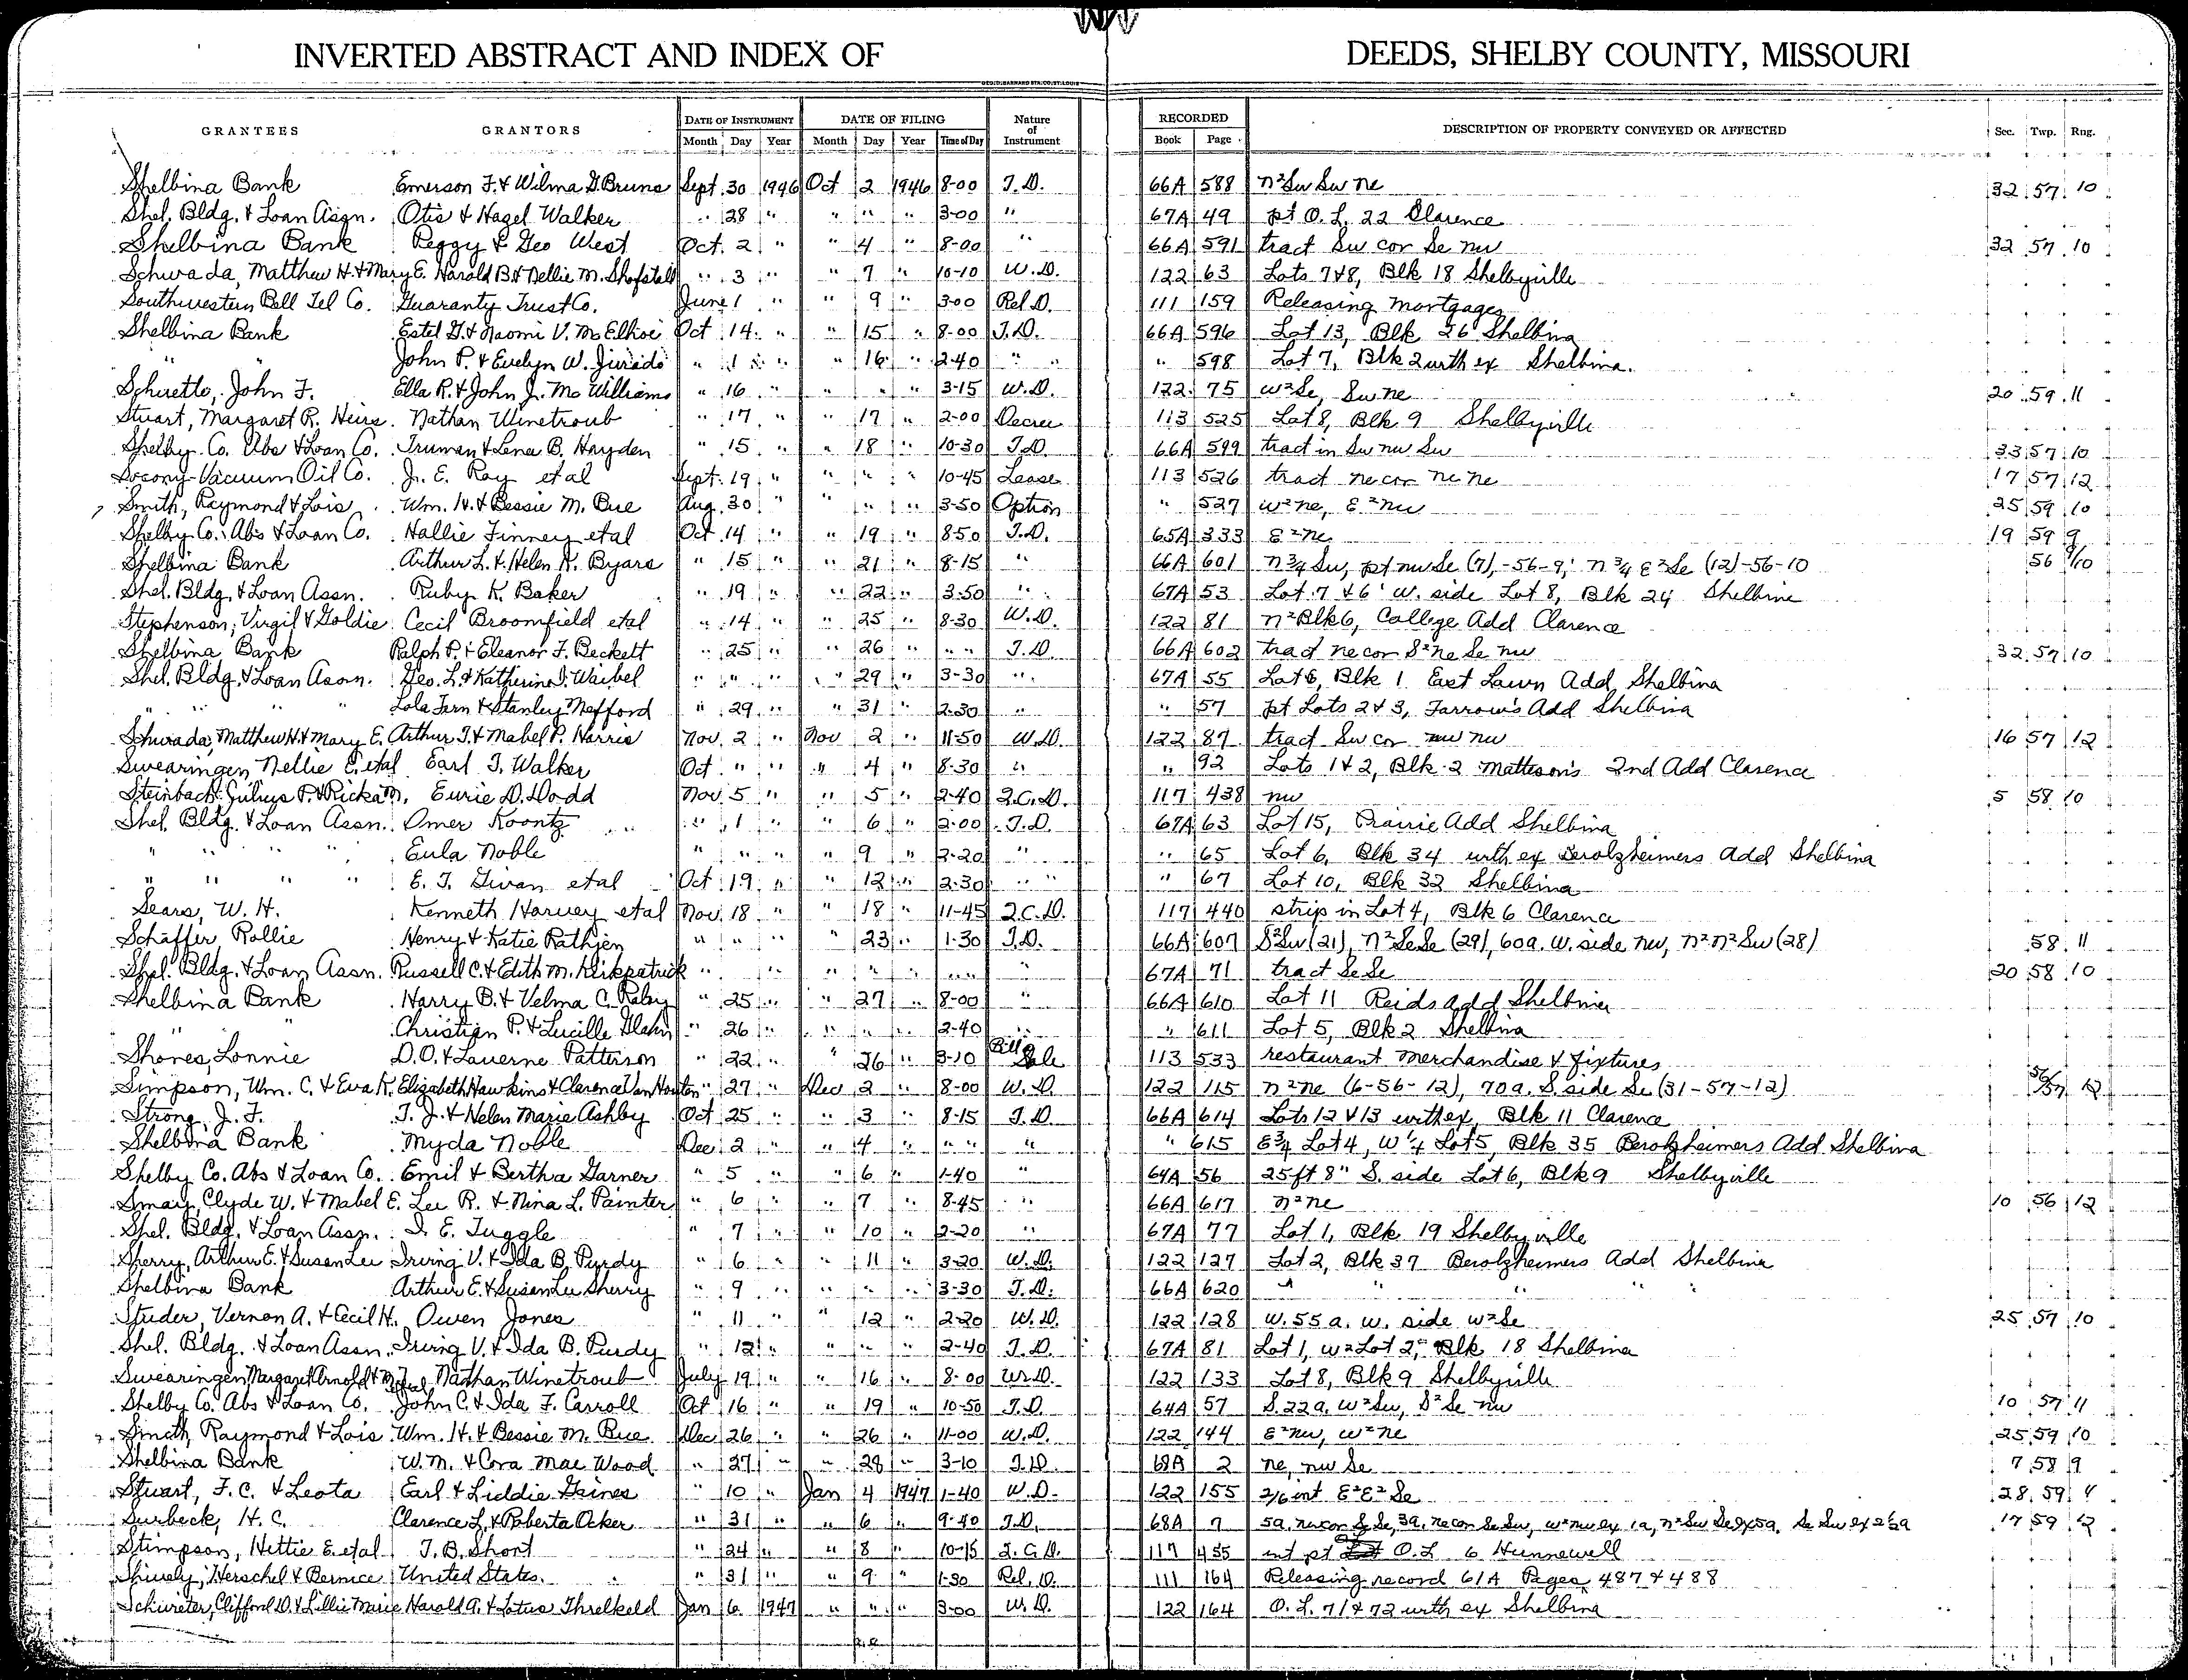 INVERTED ABSTRACT AND INDEX OF DEEDS, SHELBY COUNTY, MISSOURI
GRANTEES GRANTORS DATE OF INSTRUMENT DATE OF FILING Nature of Instrument RECORDED DESCRIPTION OF PROPERTY CONVEYED OR AFFECTED Sec. Twp. Rng.
Month Day Year Month Day Year Time of Day Book Page
Shelbina Bank Emerson F. & Wilma D. Bruns Sept. 30 1946 Oct 2 1946 8-00 T.D. 66A 588 n²Sw Sw ne 32 57 10
Shel. Bldg. & Loan Assn. Otis & Hazel Walker " 28 " " " " 3-00 " 67A 49 pt O.L. 22 Clarence
Shelbina Bank Peggy & Geo West Oct. 2 " " 4 " 8-00 " 66A 591 tract Sw cor Se nw 32 57 10
Schwada, Matthew H. & Mary E. Harold B. & Nellie M. Shofstall " 3 " " 7 " 10-10 W.D. 122 63 Lots 7 & 8, Blk 18 Shelbyville
Southwestern Bell Tel Co. Guaranty Trust Co. June 1 " " 9 " 3-00 Rel D. 111 159 Releasing mortgages
Shelbina Bank Estel G. & Naomi V. McElhoe Oct 14 " " 15 " 8-00 T.D. 66A 596 Lot 13, Blk 26 Shelbina
" " John P. & Evelyn W. " 15 " " 16 " 2-40 " " " 598 Lot 7, Blk 2 wth ex Shelbina.
John F. Ella R. & John J. McWilliams " 16 " " " " 3-15 W.D. 122 75 w²Se, Sw ne 20 59 11
Stuart, Margaret R. Heirs Nathan Winetroub " 17 " " 17 " 2-00 Decree 113 525 Lot 8, Blk 9 Shelbyville
Shelby Co. Abs & Loan Co. Truman & Lena B. Hayden " 15 " " 18 " 10-30 T.D. 66A 599 tract in Sw nw Sw 33 57 10
Socony-Vacuum Oil Co. J. E. Ray et al Sept. 19 " " " " 10-45 Lease 113 526 tract ne cor ne ne 17 57 12
Smith, Raymond & Lois Wm. H. & Bessie M. Bue Aug. 30 " " " " 3-50 Option " 527 w²ne, E²nw 25 59 10
Shelby Co. Abs & Loan Co. Hallie Finney etal Oct 14 " " 19 " 8-50 T.D. 65A 333 E²ne 19 59 9
Shelbina Bank Arthur L. & Helen K. Byars " 15 " " 21 " 8-15 " 66A 601 n¾ Sw, pt nw Se (7), -56-9; n¾ E²Se (12)-56-10 56 9/10
Shel. Bldg. & Loan Assn. Ruby K. Baker " 19 " " 22 " 3-50 " 67A 53 Lot 7 & 6' W. side Lot 8, Blk 24 Shelbina
Stephenson, Virgil & Goldie Cecil Broomfield etal " 14 " " 25 " 8-30 W.D. 122 81 n²Blk 6, College Add Clarence
Shelbina Bank Ralph P. & Eleanor F. Beckett " 25 " " 26 " " " T.D. 66A 602 tract ne cor S²ne Se nw 32 57 10
Shel. Bldg. & Loan Assn. Geo. L. & Katherine I. Waibel " " " " 29 " 3-30 " 67A 55 Lot 6, Blk 1 East Lawn Add Shelbina
" " " " Lola Fern & Stanley Mefford " 29 " " 31 " 2-30 " " 57 pt Lots 2 & 3, Farrow's Add Shelbina
Schwada, Matthew H. & Mary E. Arthur T. & Mabel P. Harris Nov. 2 " Nov 2 " 11-50 W.D. 122 87 tract Sw cor nw nw 16 57 12
Swearingen, Nellie E. etal Earl T. Walker Oct. " " " 4 " 8-30 " " 92 Lots 1 & 2, Blk 2 Matteson's 2nd Add Clarence
Steinbach, Julius P. & Ricka M. Eurie D. Dodd Nov. 5 " " 5 " 2-40 Q.C.D. 117 438 nw 5 58 10
Shel. Bldg. & Loan Assn. Omer Koontz " 1 " " 6 " 2-00 T.D. 67A 63 Lot 15, Prairie Add Shelbina
" " " " Eula Noble " " " " 9 " 2-20 " " 65 Lot 6, Blk 34 wth ex Berolzheimers Add Shelbina
" " " " E. T. Givan etal Oct 19 " " 12 " 2-30 " " " 67 Lot 10, Blk 32 Shelbina
Sears, W. H. Kenneth Harvey etal Nov. 18 " " 18 " 11-45 Q.C.D. 117 440 strip in Lot 4, Blk 6 Clarence
Schaffer, Rollie Henry & Katie Rathjen " " " " 23 " 1-30 T.D. 66A 607 S²Sw (21), n²SeSe (29), 60a. W. side nw, n²n²Sw (28) 58 11
Shel. Bldg. & Loan Assn. Russell C. & Edith M. Kirkpatrick " " " " " " " " 67A 71 tract Se Se 20 58 10
Shelbina Bank Harry B. & Velma C. Raley " 25 " " 27 " 8-00 " 66A 610 Lot 11 Reids add Shelbina
" " Christian P. & Lucille Glahn " 26 " " " " 2-40 " " 611 Lot 5, Blk 2 Shelbina
Shores, Lonnie D.O. & Laverne Patterson " 22 " " 26 " 3-10 Bill Sale 113 533 restaurant merchandise & fixtures
Simpson, Wm. C. & Eva K. Elizabeth Hawkins & Clarence Van Houten " 27 " Dec 2 " 8-00 W.D. 122 115 n²ne (6-56-12), 70a. S side Se (31-57-12) 56/57 12
Strong, J. F. T. J. & Helen Marie Ashby Oct 25 " " 3 " 8-15 T.D. 66A 614 Lots 12 & 13 wth ex, Blk 11 Clarence
Shelbina Bank Myda Noble Dec 2 " " 4 " " " " " 615 E¾ Lot 4, W¼ Lot 5, Blk 35 Berolzheimers Add Shelbina
Shelby Co. Abs & Loan Co. Emil & Bertha Garner " 5 " " 6 " 1-40 " 64A 56 25 ft 8" S. side Lot 6, Blk 9 Shelbyville
Smay, Clyde W. & Mabel E. Lee R. & Nina L. Painter " 6 " " 7 " 8-45 " 66A 617 n²ne 10 56 12
Shel. Bldg. & Loan Assn. I. E. Tuggle " 7 " " 10 " 2-20 " 67A 77 Lot 1, Blk 19 Shelbyville
Sherry, Arthur E. & Susan Lee Irving V. & Ida B. Purdy " 6 " " 11 " 3-20 W.D. 122 127 Lot 2, Blk 37 Berolzheimers Add Shelbina
Shelbina Bank Arthur E. & Susan Lee Sherry " 9 " " " " 3-30 T.D. 66A 620 " " " " "
Studer, Vernon A. & Cecil H. Owen Jones " 11 " " 12 " 2-20 W.D. 122 128 W. 55 a. w. side w²Se 25 57 10
Shel. Bldg. & Loan Assn. Irving V. & Ida B. Purdy " 12 " " " " 2-40 T.D. 67A 81 Lot 1, w²Lot 2, Blk 18 Shelbina
Swearingen, Margaret Arnold & etal Nathan Winetroub July 19 " " 16 " 8-00 W.D. 122 133 Lot 8, Blk 9 Shelbyville
Shelby Co. Abs & Loan Co. John C. & Ida F. Carroll Oct 16 " " 19 " 10-50 T.D. 64A 57 S. 22a. w²Sw, S²Se nw 10 57 11
Smith, Raymond & Lois Wm. H. & Bessie M. Bue Dec 26 " " 26 " 11-00 W.D. 122 144 E²nw, w²ne 25 59 10
Shelbina Bank W. M. & Cora Mae Wood " 27 " " 28 " 3-10 T.D. 68A 2 ne, nw Se 7 58 9
Stuart, F. C. & Leota Earl & Liddie Gaines " 10 " Jan 4 1947 1-40 W.D. 122 155 2/6 int E²E²Se 28 59 9
Surbeck, H. C. Clarence L. & Roberta Acker " 31 " " 6 " 9-40 T.D. 68A 7 5a. ne cor Se Se, 3a. ne cor Se Sw, w²nw ex 1a, n²Sw Se ex 5a, Se Sw ex 2½a 17 59 12
Stimpson, Hettie E. etal T. B. Short " 24 " " 8 " 10-15 Q.C.D. 117 455 int pt O.L 6 Hunnewell
Shively, Herschel & Bernice United States " 31 " " 9 " 1-30 Rel. D. 111 164 Releasing record 61A Pages 487 & 488
Schwieter, Clifford D. & Lillie Marie Harold A. & Lotus Threlkeld Jan 6 1947 " " " 3-00 W.D. 122 164 O.L. 71 & 72 wth ex Shelbina